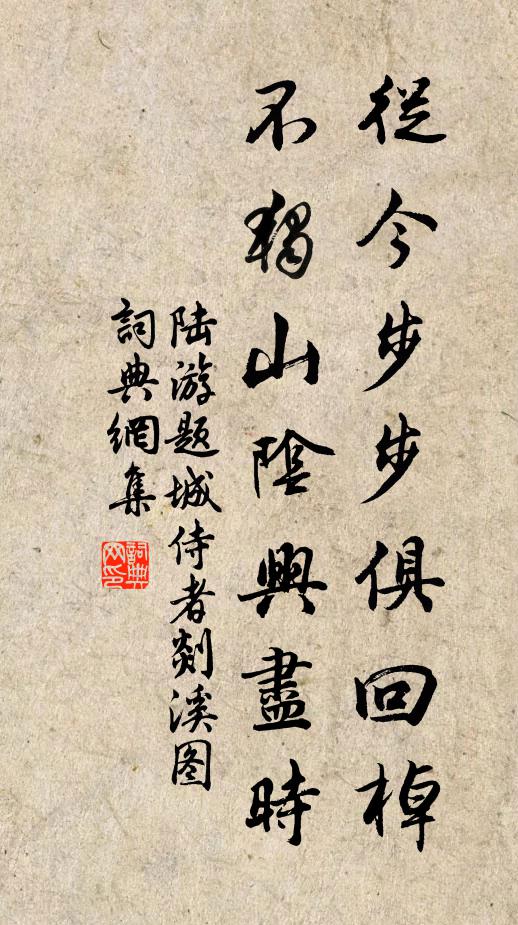 從今步步俱回棹
不獨山陰興盡時
陆游题城侍者剡溪图
詞典網集
詞典网印